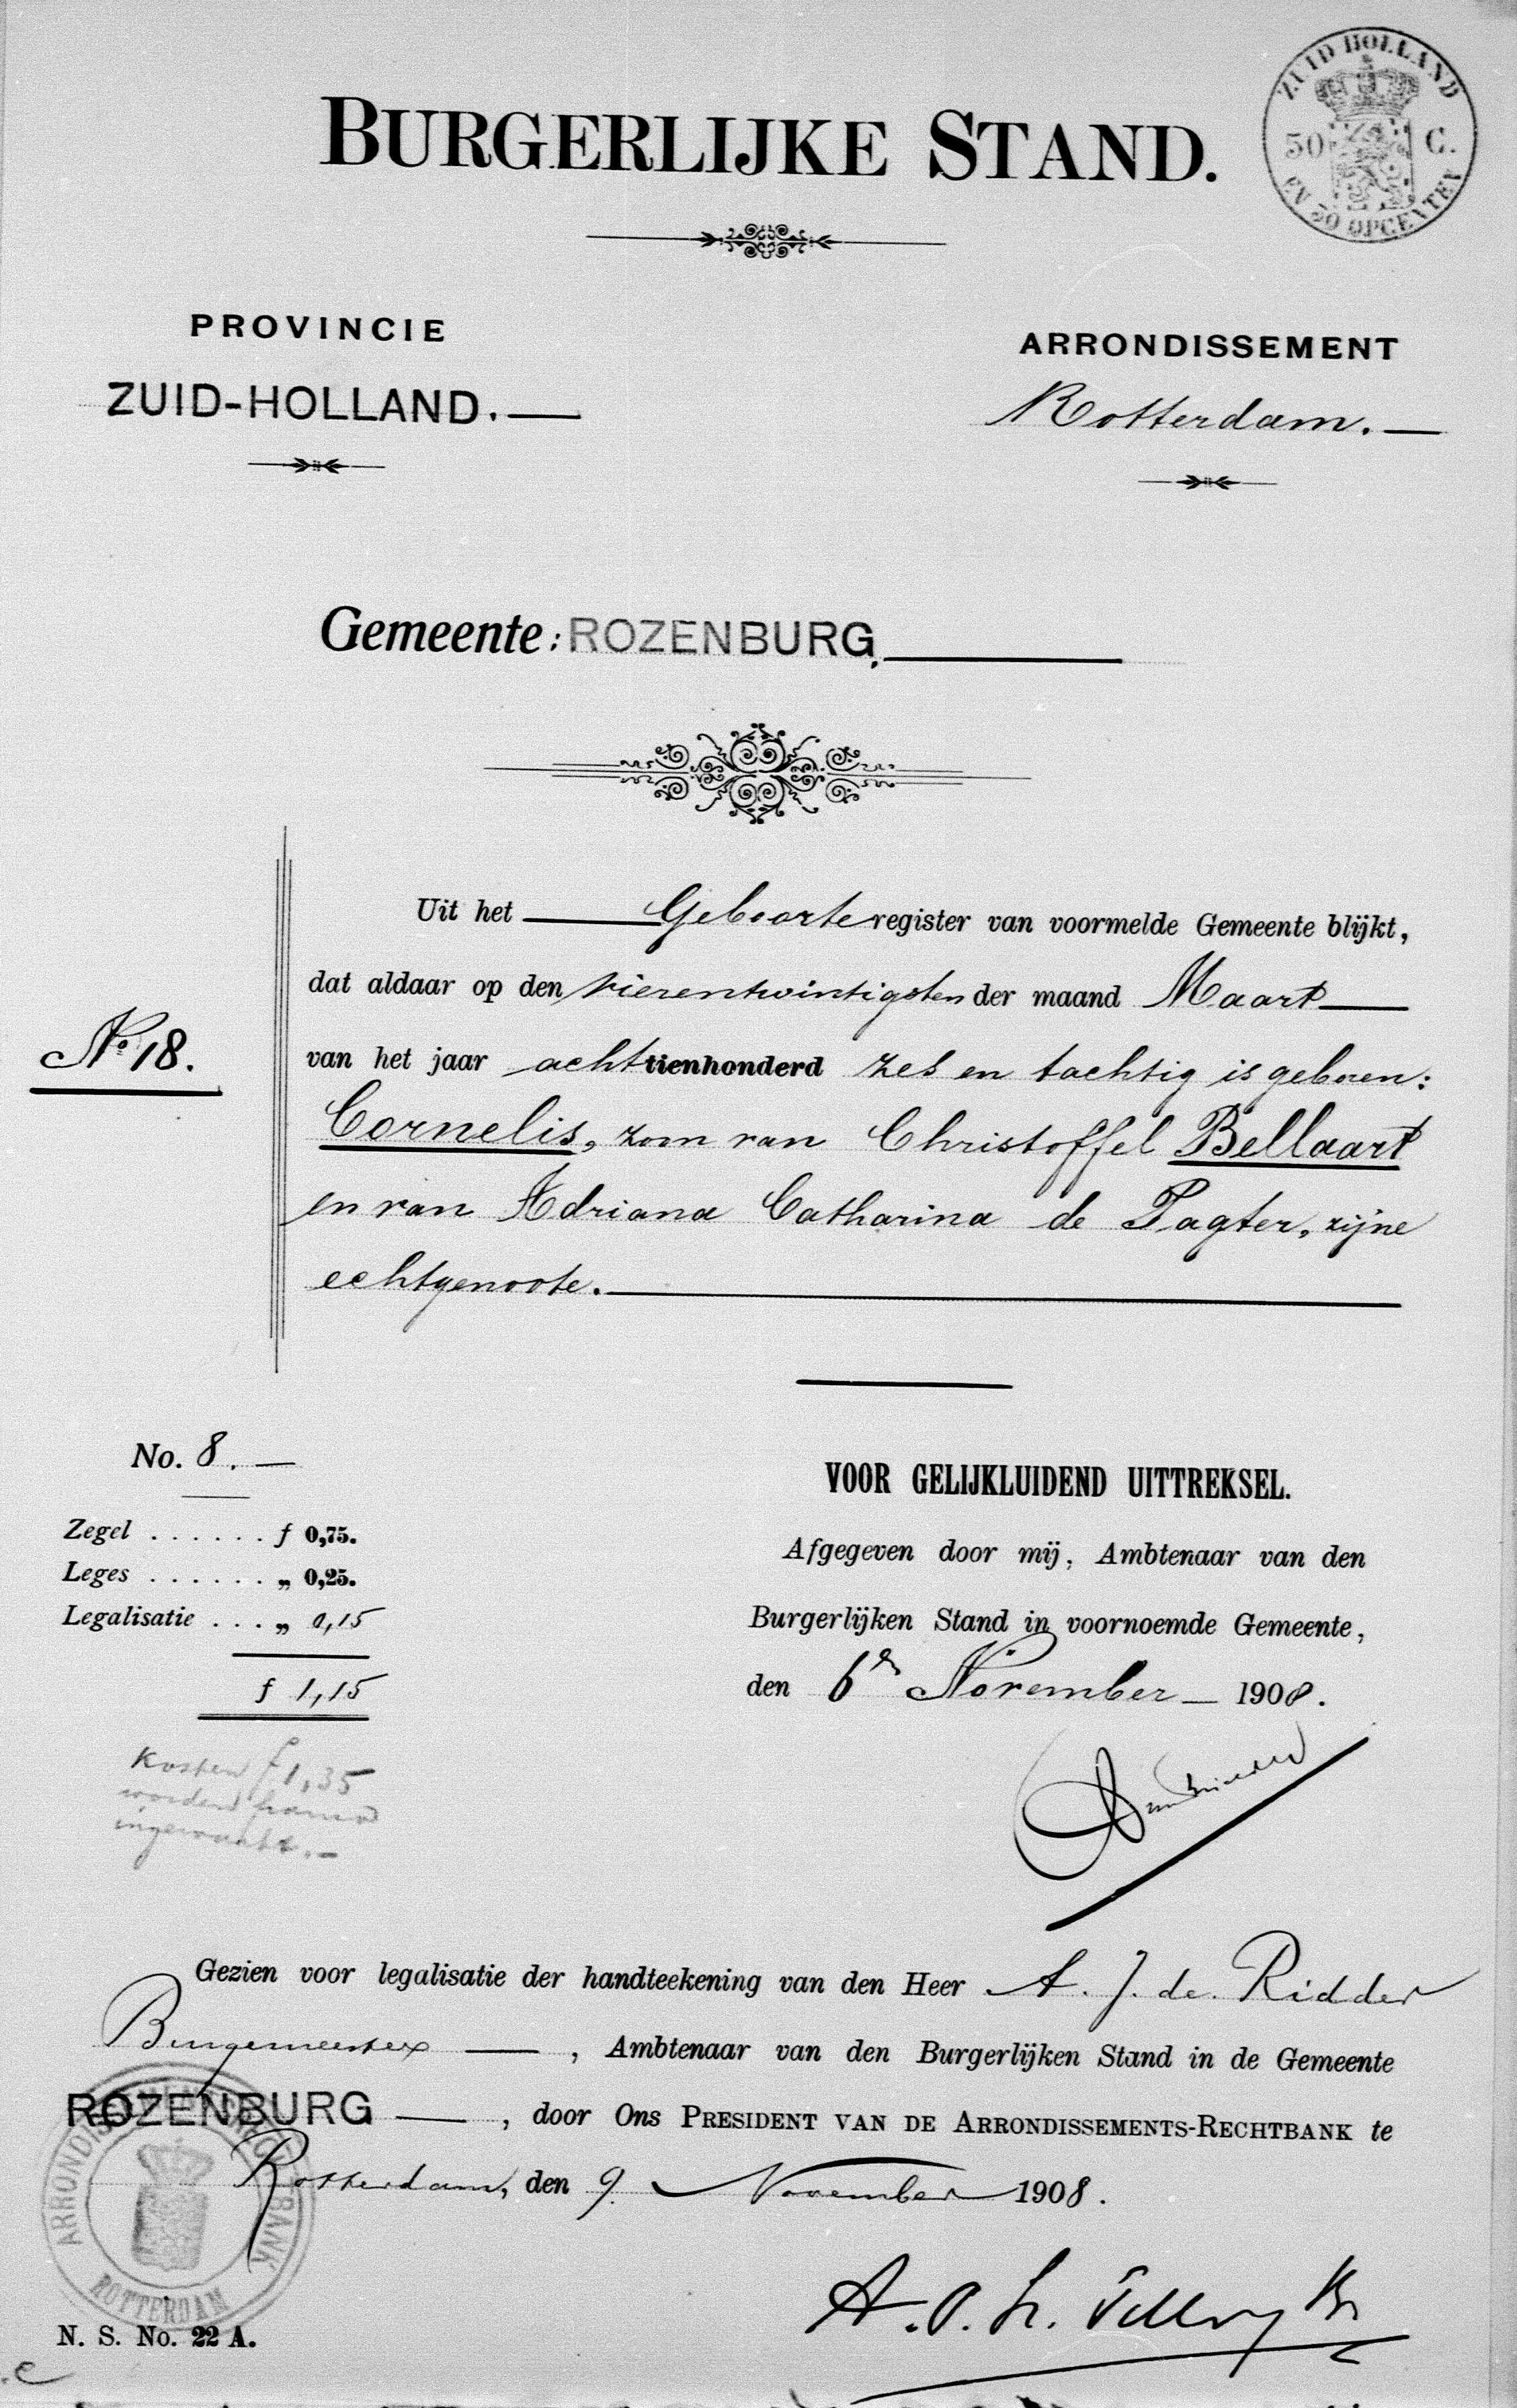 BURGERLIJKE STAND.
ZUID HOLLAND
50 C.
EN 50 OPCENTEN
PROVINCIE
ZUID-HOLLAND.
ARRONDISSEMENT
Rotterdam.
Gemeente: ROZENBURG.
Uit het Geboorteregister van voormelde Gemeente blijkt,
dat aldaar op den vierentwintigsten der maand Maart
No 18.
van het jaar achttienhonderd zes en tachtig is geboren:
Cornelis, zoon van Christoffel Bellaart
en van Adriana Catharina de Pagter, zijne
echtgenoote.
No. 8.
Zegel . . . . . . f 0,75.
Leges . . . . . . „ 0,25.
Legalisatie . . . „ 0,15
f 1,15
Kosten f 1,35
worden franco
ingewacht.
VOOR GELIJKLUIDEND UITTREKSEL.
Afgegeven door mij, Ambtenaar van den
Burgerlijken Stand in voornoemde Gemeente,
den 6en November 1908.
Gezien voor legalisatie der handteekening van den Heer A. J. de Ridder
Burgemeester, Ambtenaar van den Burgerlijken Stand in de Gemeente
ROZENBURG, door Ons PRESIDENT VAN DE ARRONDISSEMENTS-RECHTBANK te
Rotterdam, den 9. November 1908.
ARRONDISSEMENTS RECHTBANK
ROTTERDAM
N. S. No. 22 A.